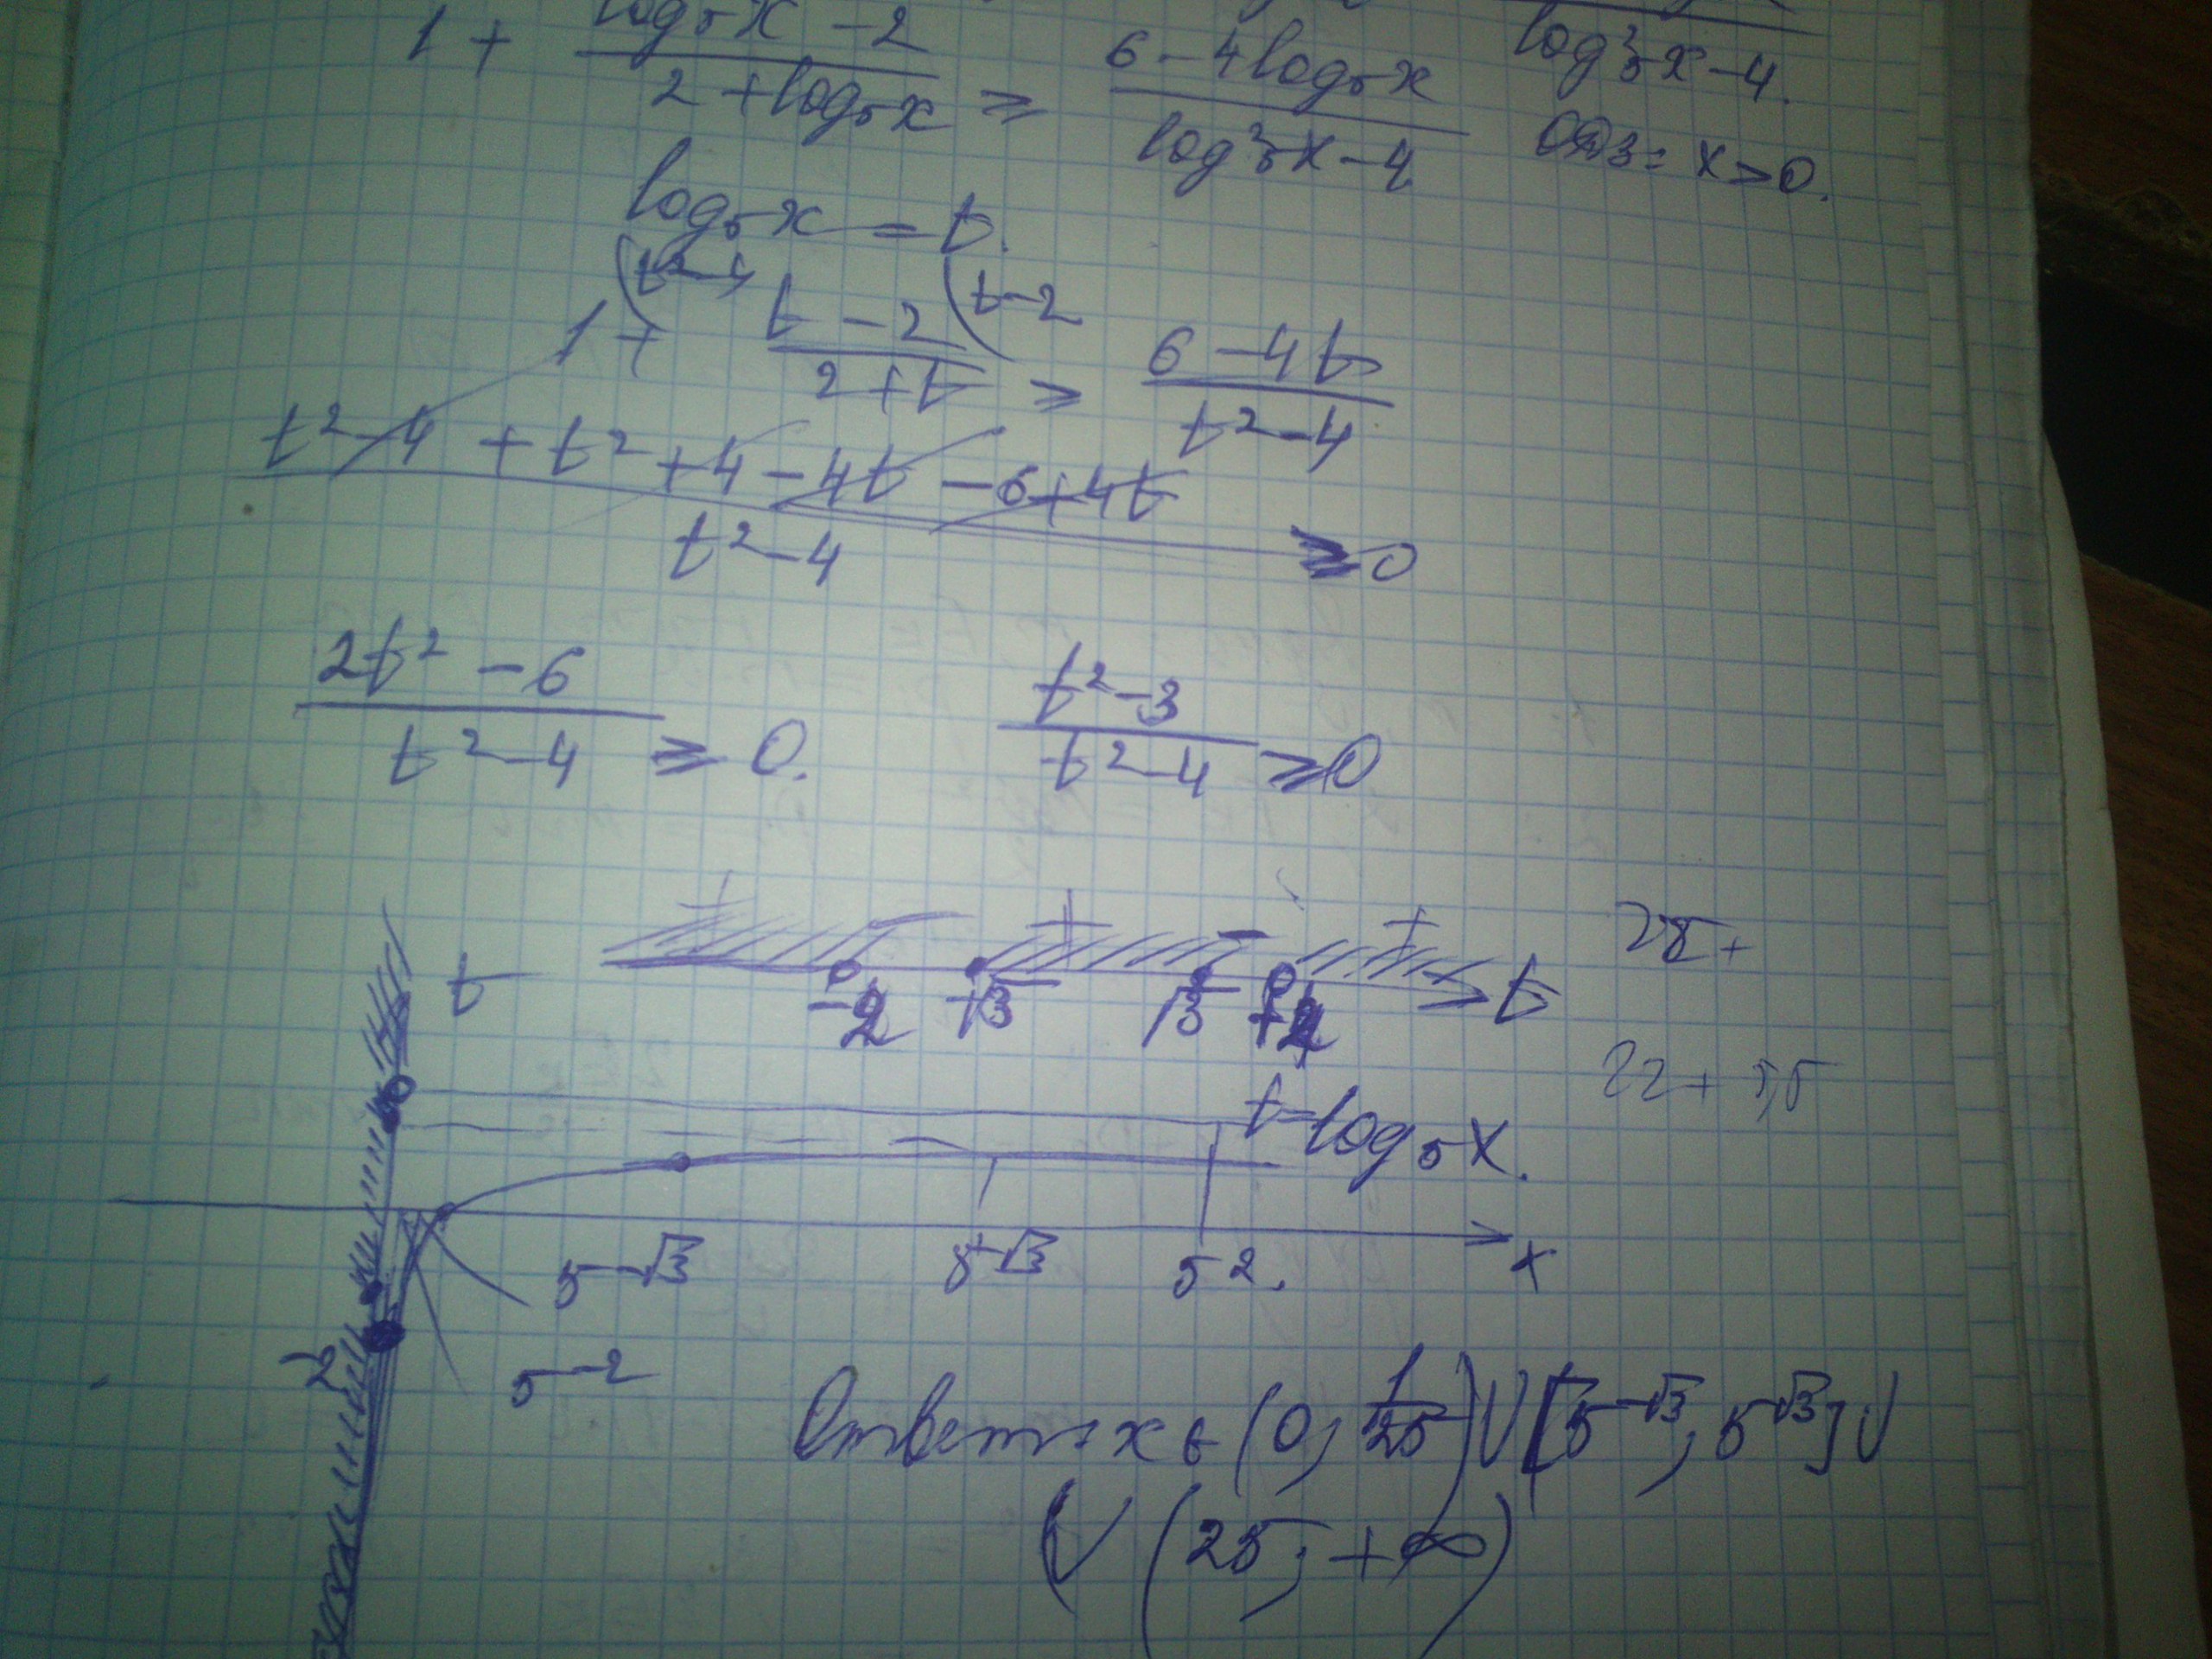 1 + (log₅x − 2)/(2 + log₅x) ≥ (6 − 4log₅x)/(log²₅x − 4)
log²₅x − 4.
ОДЗ: x > 0.
log₅x = t.
(t²−4 (t−2
1 + (t − 2)/(2 + t) ≥ (6 − 4t)/(t² − 4)
(t² − 4 + t² + 4 − 4t − 6 + 4t)/(t² − 4) ≥ 0
(2t² − 6)/(t² − 4) ≥ 0. (t² − 3)/(t² − 4) ≥ 0
+ + − +
−2 −√3 √3 +2 t
22 +
t
t = log₅x.
5^−√3 5^+√3 5². x
5^−2
Ответ: x ∈ (0; 1/25) ∪ [5^−√3; 5^√3] ∪
∪ (25; +∞)